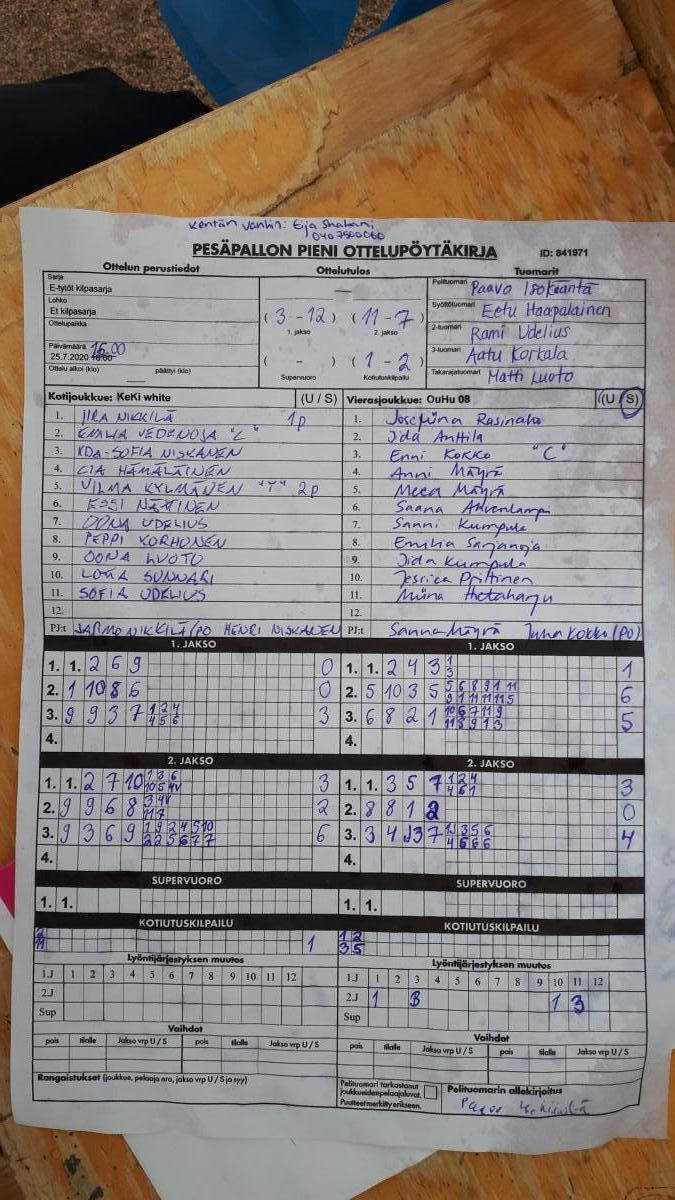 Kentän vanhin: Eija Shabani
0407500060
PESÄPALLON PIENI OTTELUPÖYTÄKIRJA ID: 841971
Ottelun perustiedot Ottelutulos Tuomarit
Sarja
E-tytöt kilpasarja
Lohko
Et kilpasarja
Ottelupaikka
Päivämäärä 15.00
25.7.2020 16:00
Ottelu alkoi (klo) päättyi (klo)
( 3 - 12 ) ( 11 - 7 )
1. jakso 2. jakso
( - ) ( 1 - 2 )
Supervuoro Kotiutuskilpailu
Pelituomari Paavo Isokääntä
Syöttötuomari Eetu Haapalainen
2-tuomari Rami Udelius
3-tuomari Aatu Korkala
Takarajatuomari Matti Luoto
Kotijoukkue: KeKi white (U / S)
1. IIRA NIKKILÄ 1p
2. EMILIA VEDENOJA "C"
3. IDA-SOFIA NISKANEN
4. CIA HÄMÄLÄINEN
5. VILMA KYLMÄNEN "T" 2p
6. ESSI NÄTTINEN
7. OONA UDELIUS
8. PEPPI KORHONEN
9. OONA LUOTO
10. LOTTA SUNNARI
11. SOFIA UDELIUS
12.
PJ:t JARMO NIKKILÄ (PO HENRI NISKANEN
Vierasjoukkue: OuHu 08 (U / S)
1. Josefiina Rasinaho
2. Iida Anttila
3. Enni Kokko "C"
4. Anni Mäyrä
5. Meea Mäyrä
6. Saana Ahvenlampi
7. Sanni Kumpula
8. Emilia Sarjanoja
9. Iida Kumpula
10. Jessica Piittinen
11. Miina
12.
PJ:t Sanna Mäyrä Juha Kokko (PO)
1. JAKSO
1. 1. 2 6 9 0
2. 1 10 8 6 0
3. 9 9 3 7 1 2 4 3
4 5 6
4.
1. JAKSO
1. 1. 2 4 3 1 1
3
2. 5 10 3 5 5 6 8 9 1 11 6
9 1 11 11 11 5
3. 6 8 2 1 10 6 7 11 9 5
11 8 9 1 3
4.
2. JAKSO
1. 1. 2 7 10 1 3 6 3
10 5 4V
2. 9 9 6 8 3 4V 2
11 7
3. 9 3 6 9 1 9 2 4 5 10 6
2 2 5 6 7 7
4.
2. JAKSO
1. 1. 3 5 7 1 2 4 3
4 6 1
2. 8 8 1 2 0
3. 3 4 3 7 11 3 5 6 4
4 5 6 6
4.
SUPERVUORO
1. 1.
SUPERVUORO
1. 1.
KOTIUTUSKILPAILU
1
KOTIUTUSKILPAILU
1 2
3 5
Lyöntijärjestyksen muutos
1.J 1 2 3 4 5 6 7 8 9 10 11 12
2.J
Sup
Lyöntijärjestyksen muutos
1.J 1 2 3 4 5 6 7 8 9 10 11 12
2.J 1 3 1 3
Sup
Vaihdot
pois tilalle Jakso vrp U / S pois tilalle Jakso vrp U / S
Vaihdot
pois tilalle Jakso vrp U / S pois tilalle Jakso vrp U / S
Rangaistukset (joukkue, pelaaja nro, jakso vrp U / S ja syy)
Pelituomari tarkastanut
joukkueidenpelaajaluvat.
Puutteet merkitty erikseen.
Pelituomarin allekirjoitus
Paavo Isokääntä